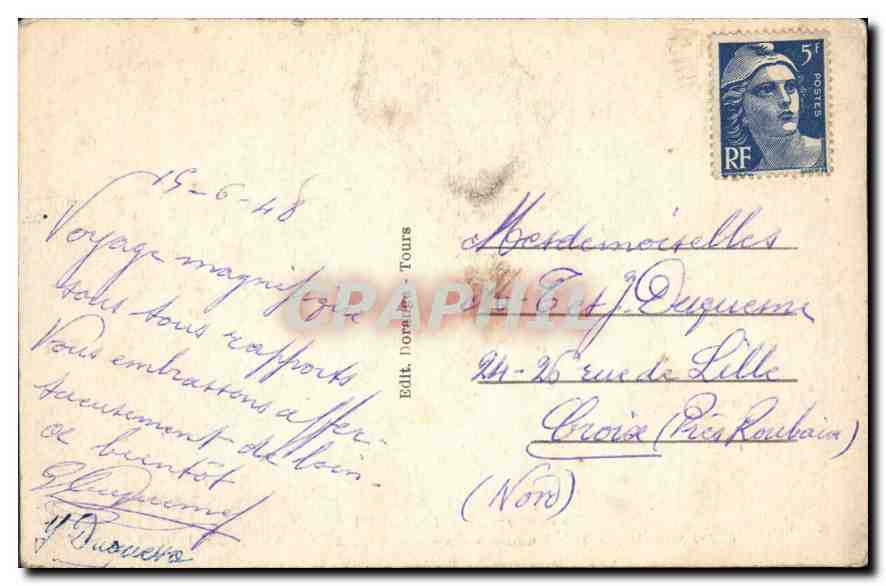 15-6-48
Voyage magnifique
sous tous rapports
Vous embrassons affec-
tueusement de loin
à bientôt
Edit. Dorange - Tours
5F
POSTES
RF
Mesdemoiselles
T et J. Duquesne
24-26 rue de Lille
Croix (Près Roubaix)
(Nord)
CPAPHIL